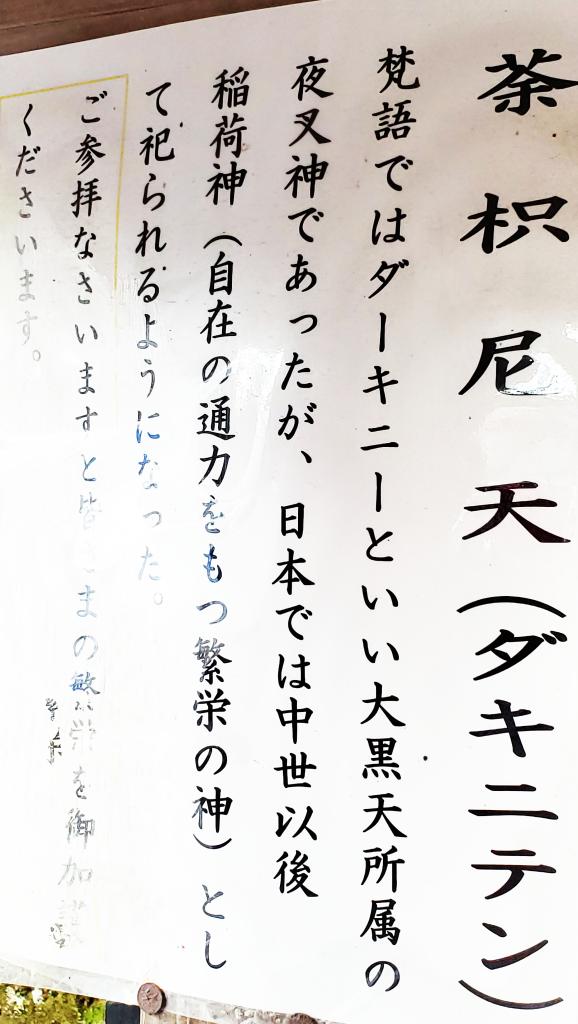 荼枳尼天(ダキニテン)
梵語ではダーキニーといい大黒天所属の
夜叉神であったが、日本では中世以後
稲荷神(自在の通力をもつ繁栄の神)とし
て祀られるようになった。
ご参拝なさいますと皆さまの繁栄を御加護
くださいます。